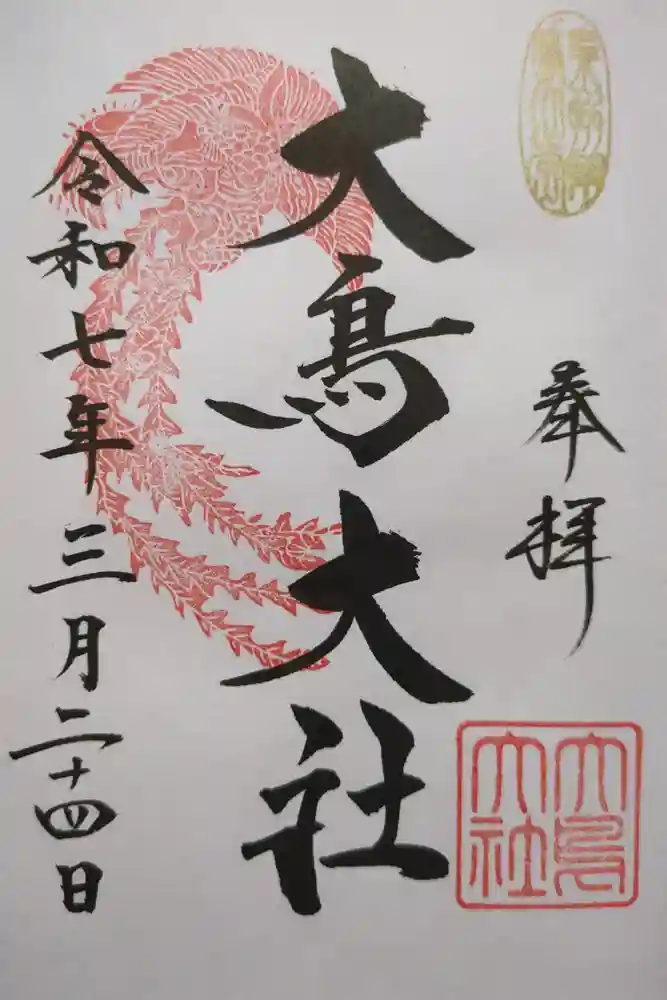 奉拝
大鳥大社
大鳥
大社
令和七年三月二十四日